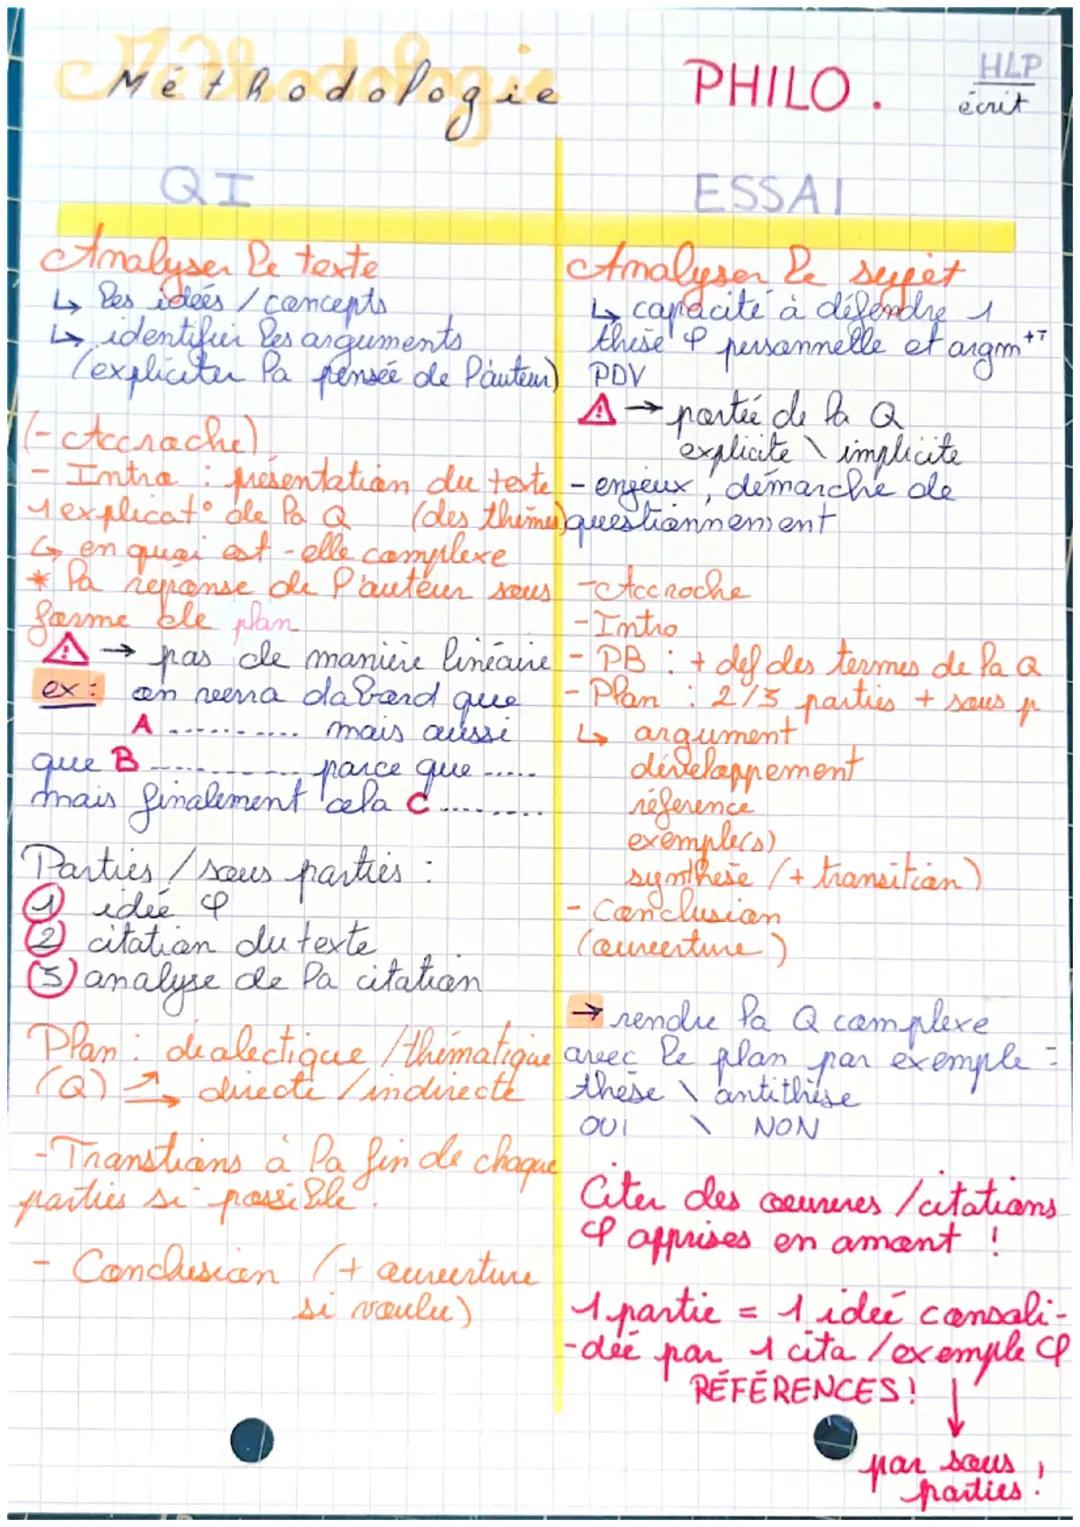 Méthodologie
PHILO.
HLP
écrit
QI
Analyser le texte
↳ les idées / concepts
↳ identifier les arguments
(expliciter la pensée de l'auteur)
(- Accroche)
- Intro : présentation du texte
1 explicat° de la Q (des thèmes)
↳ en quoi est-elle complexe
* la réponse de l'auteur sous
forme de plan
⚠ → pas de manière linéaire
ex : on verra dabord que
A ........... mais aussi
que B ............ parce que .....
mais finalement cela C .........
Parties / sous parties :
① idée φ
② citation du texte
③ analyse de la citation
Plan : dialectique / thématique
(Q) → directe / indirecte
- Transtions à la fin de chaque
parties si possible.
- Conclusion (+ ouverture
si voulu)
ESSAI
Analyser le sujet
↳ capacité à défendre 1
thèse φ personnelle et argm
PDV
⚠ → portée de la Q
explicite \ implicite
- enjeux, démarche de
questionnement
- Accroche
- Intro
- PB : + def des termes de la Q
- Plan : 2/3 parties + sous p
↳ argument
développement
référence
exemple(s)
synthèse (+ transition)
- Conclusion
(ouverture)
→ rendre la Q complexe
avec le plan par exemple =
thèse \ antithèse
OUI \ NON
Citer des oeuvres / citations
φ apprises en amont !
1 partie = 1 idée consoli-
-dée par 1 cita / exemple φ
RÉFÉRENCES !
↓
par sous
parties !